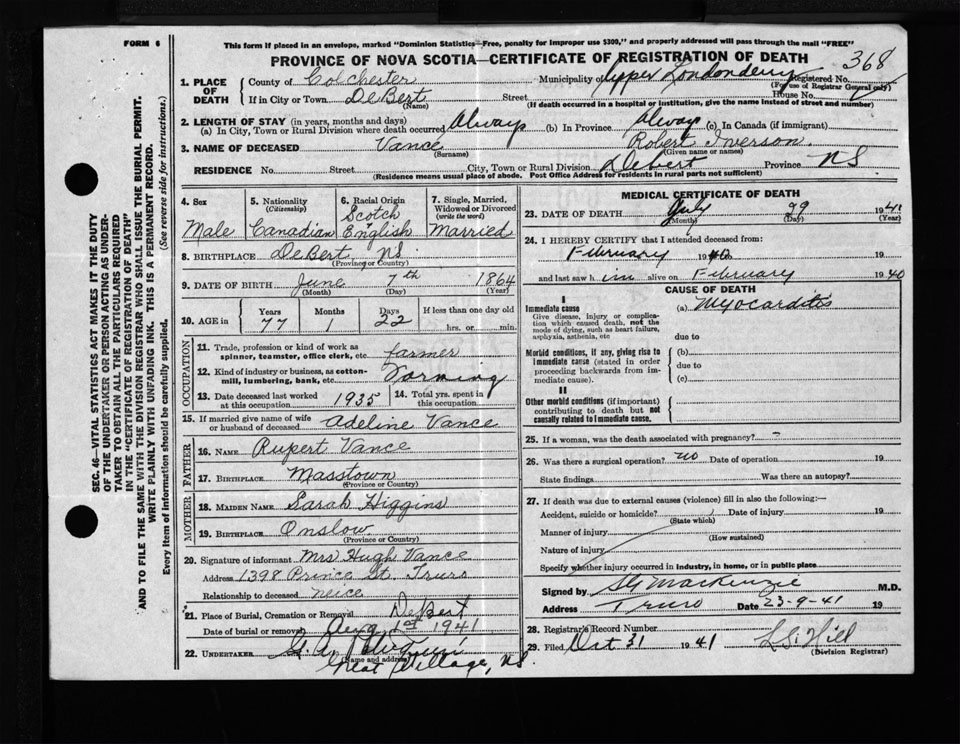 FORM 6
This form if placed in an envelope, marked "Dominion Statistics—Free, penalty for improper use $300," and properly addressed will pass through the mail "FREE"
PROVINCE OF NOVA SCOTIA—CERTIFICATE OF REGISTRATION OF DEATH 368
1. PLACE OF DEATH County of Colchester Municipality of Upper Londonderry Registered No.
(For use of Registrar General only)
If in City or Town DeBert Street House No.
(Name) (If death occurred in a hospital or institution, give the name instead of street and number)
2. LENGTH OF STAY (in years, months and days)
(a) In City, Town or Rural Division where death occurred Always (b) In Province Always (c) In Canada (if immigrant)
3. NAME OF DECEASED Vance Robert Iverson.
Surname (Given name or names)
RESIDENCE No. Street City, Town or Rural Division Debert Province NS
(Residence means usual place of abode. Post Office Address for residents in rural parts not sufficient)
4. Sex 5. Nationality (Citizenship) 6. Racial Origin 7. Single, Married, Widowed or Divorced (write the word)
Male Canadian Scotch English Married
8. BIRTHPLACE DeBert NS
(Province or Country)
9. DATE OF BIRTH June 7th 1864
(Month) (Day) (Year)
10. AGE in Years Months Days If less than one day old
77 1 22 hrs. or min.
OCCUPATION
11. Trade, profession or kind of work as spinner, teamster, office clerk, etc. farmer
12. Kind of industry or business, as cotton-mill, lumbering, bank, etc. Farming
13. Date deceased last worked at this occupation 1935 14. Total yrs. spent in this occupation
15. If married give name of wife or husband of deceased Adeline Vance
FATHER
16. NAME Rupert Vance
17. BIRTHPLACE Masstown
(Province or Country)
MOTHER
18. MAIDEN NAME Sarah Higgins
19. BIRTHPLACE Onslow
(Province or Country)
20. Signature of informant Mrs Hugh Vance
Address 1398 Prince St. Truro
Relationship to deceased neice
21. Place of Burial, Cremation or Removal DeBert
Date of burial or removal Aug 1st 1941
22. UNDERTAKER G. A.
(Name and address)
Great Village, NS
MEDICAL CERTIFICATE OF DEATH
23. DATE OF DEATH July 29 1941
(Month) (Day) (Year)
24. I HEREBY CERTIFY that I attended deceased from:
February 1940
and last saw him alive on February 1940
CAUSE OF DEATH
I
Immediate cause (a) Myocarditis
Give disease, injury or complication which caused death, not the mode of dying, such as heart failure, asphyxia, asthenia, etc
due to
Morbid conditions, if any, giving rise to immediate cause (stated in order proceeding backwards from immediate cause).
(b)
due to
(c)
II
Other morbid conditions (if important) contributing to death but not causally related to immediate cause.
25. If a woman, was the death associated with pregnancy? -
26. Was there a surgical operation? no Date of operation 19
State findings Was there an autopsy?
27. If death was due to external causes (violence) fill in also the following:—
Accident, suicide or homicide? Date of injury 19
(State which)
Manner of injury
(How sustained)
Nature of injury
Specify whether injury occurred in Industry, in home, or in public place
Signed by MacKenzie M.D.
Address Truro Date 23-9-41 19
28. Registrar's Record Number
29. Filed Oct 31 1941 L.S. Hill
(Division Registrar)
SEC. 46—VITAL STATISTICS ACT MAKES IT THE DUTY
OF THE UNDERTAKER OR PERSON ACTING AS UNDER-
TAKER TO OBTAIN ALL THE PARTICULARS REQUIRED
IN THE "CERTIFICATE OF REGISTRATION OF DEATH"
AND TO FILE THE SAME WITH THE DIVISION REGISTRAR WHO SHALL ISSUE THE BURIAL PERMIT.
WRITE PLAINLY WITH UNFADING INK. THIS IS A PERMANENT RECORD.
Every item of information should be carefully supplied. (See reverse side for instructions.)